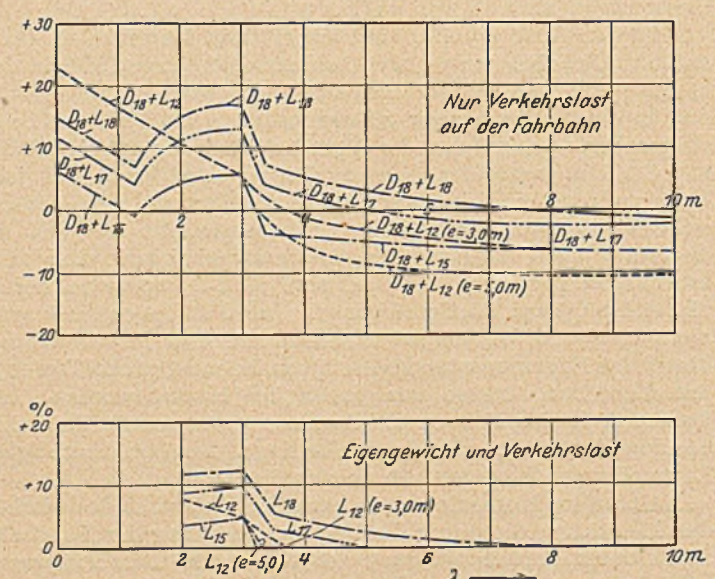 +30
+20
+10
0
-10
-20
D18+L12
D18+L18
D18+L18
D18+L17
D18+L15
Nur Verkehrslast
auf der Fahrbahn
D18+L18
D18+L17
2
4
6
8
10 m
D18+L12 (e=3,0m)
D18+L17
D18+L15
D18+L12 (e=5,0m)
%
+20
+10
0
Eigengewicht und Verkehrslast
L12
L18
L12 (e=3,0m)
L15
L17
L12 (e=5,0)
0
2
4
6
8
10 m